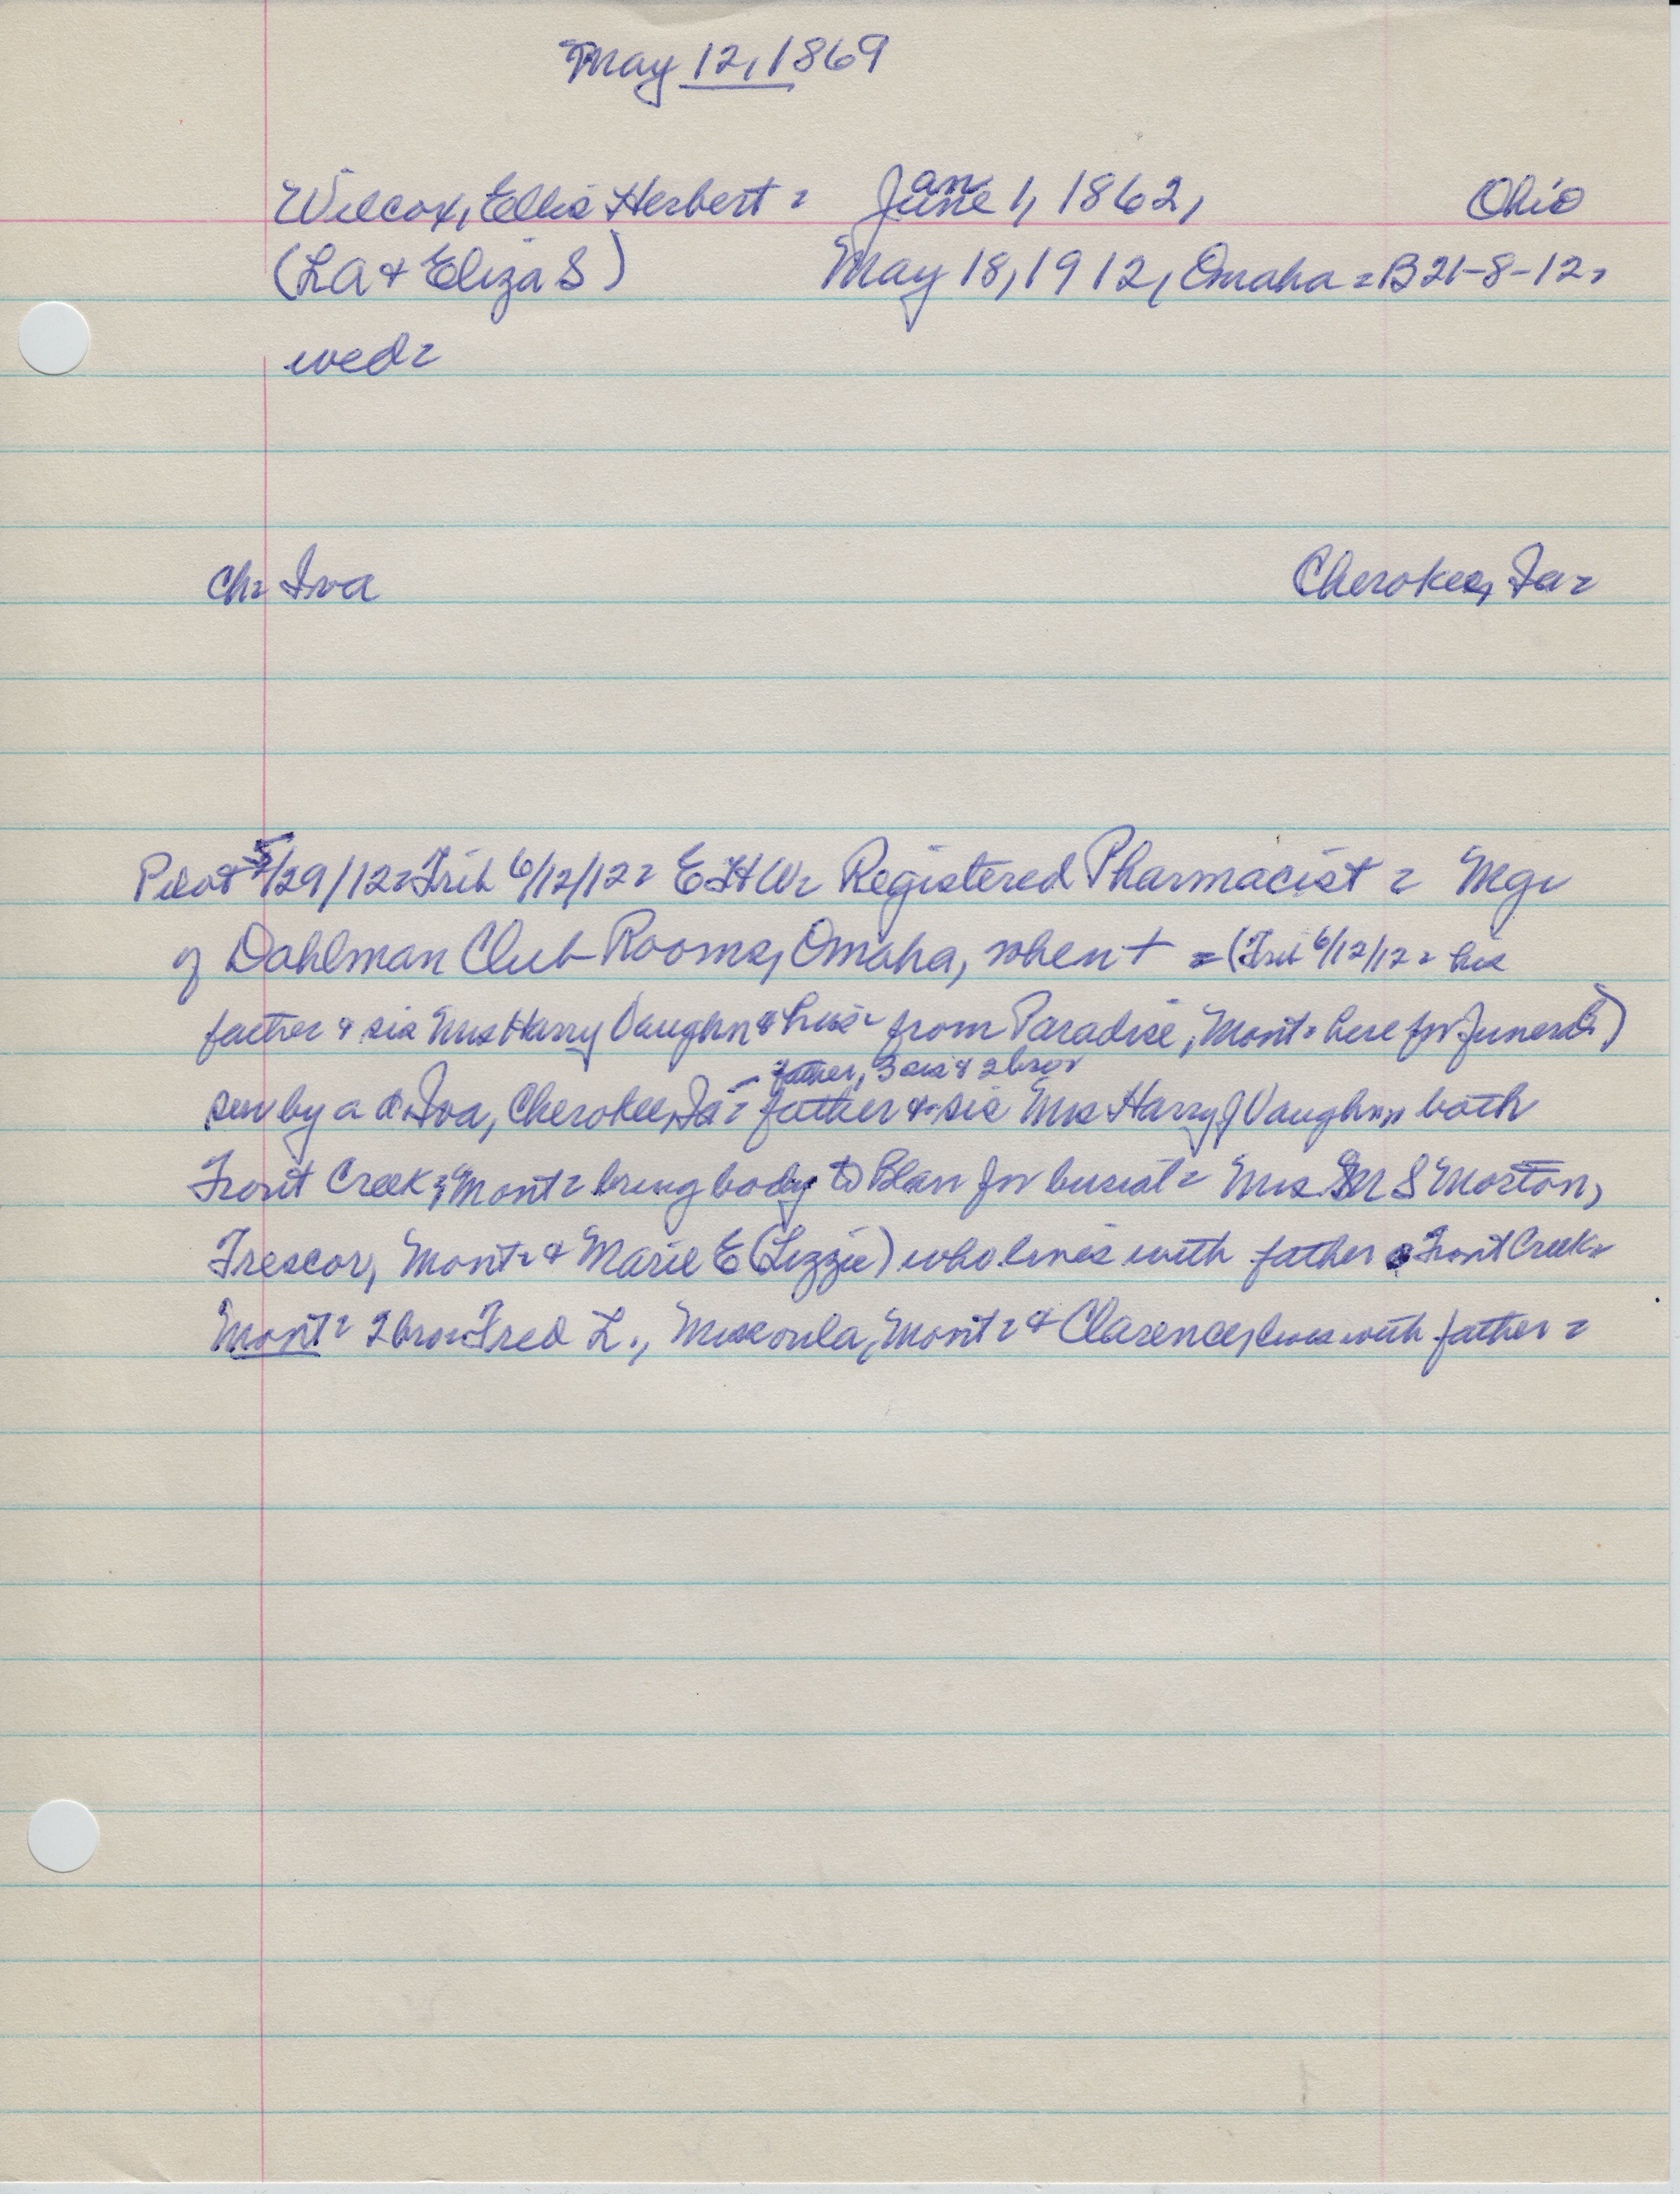 May 12, 1869
Wilcox, Ellis Herbert = June 1, 1862, Ohio
Jan
(LA & Eliza S) May 18, 1912, Omaha = B 21-8-12 =
wed =
Ch = Iva Cherokee, Ia =
Pilot 5/29/12 = Trib 6/12/12 = EHW = Registered Pharmacist = Mgr
of Dahlman Club Rooms, Omaha, when + = (Trib 6/12/12 = his
father & sis Mrs Harry Vaughn & hus = from Paradise, Mont = here for funeral)
father, 3 sis & 2 bros
sur by a d Iva, Cherokee, Ia = father & sis Mrs Harry J Vaughn, both
Trout Creek, Mont = bring body to Blair for burial = Mrs M S Morton,
Mont = & Marie E (Lizzie) who lives with father Trout Creek =
Mont = 2 bros = Fred L., Missoula, Mont = & Clarence, lives with father =